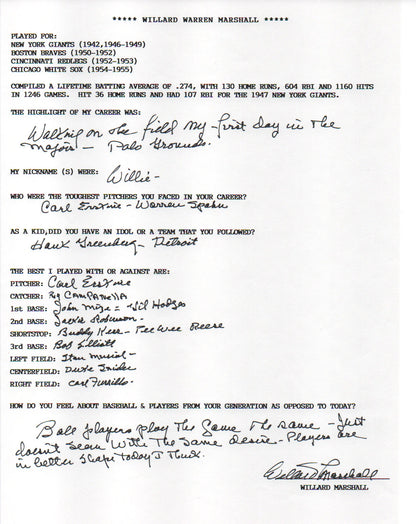 ***** WILLARD WARREN MARSHALL *****
PLAYED FOR:
NEW YORK GIANTS (1942,1946-1949)
BOSTON BRAVES (1950-1952)
CINCINNATI REDLEGS (1952-1953)
CHICAGO WHITE SOX (1954-1955)
COMPILED A LIFETIME BATTING AVERAGE OF .274, WITH 130 HOME RUNS, 604 RBI AND 1160 HITS
IN 1246 GAMES. HIT 36 HOME RUNS AND HAD 107 RBI FOR THE 1947 NEW YORK GIANTS.
THE HIGHLIGHT OF MY CAREER WAS:
Walking on the field My first day in The
Majors — Polo Grounds.
MY NICKNAME (S) WERE: Willie -
WHO WERE THE TOUGHEST PITCHERS YOU FACED IN YOUR CAREER?
Carl Erskine - Warren Spahn
AS A KID,DID YOU HAVE AN IDOL OR A TEAM THAT YOU FOLLOWED?
Hank Greenberg - Detroit
THE BEST I PLAYED WITH OR AGAINST ARE:
PITCHER: Carl Erskine
CATCHER: Roy CAMPANELLA
1st BASE: John Mize - Gil Hodges
2nd BASE: Jackie Robinson -
SHORTSTOP: Buddy Kerr - Pee Wee Reese
3rd BASE: Bob Elliott
LEFT FIELD: Stan Musial -
CENTERFIELD: Duke Snider
RIGHT FIELD: Carl Furillo -
HOW DO YOU FEEL ABOUT BASEBALL & PLAYERS FROM YOUR GENERATION AS OPPOSED TO TODAY?
Ball players play The Game The same - Just
doesn't seem With The Same desire - Players are
in better shape today I Think.
Willard Marshall
WILLARD MARSHALL